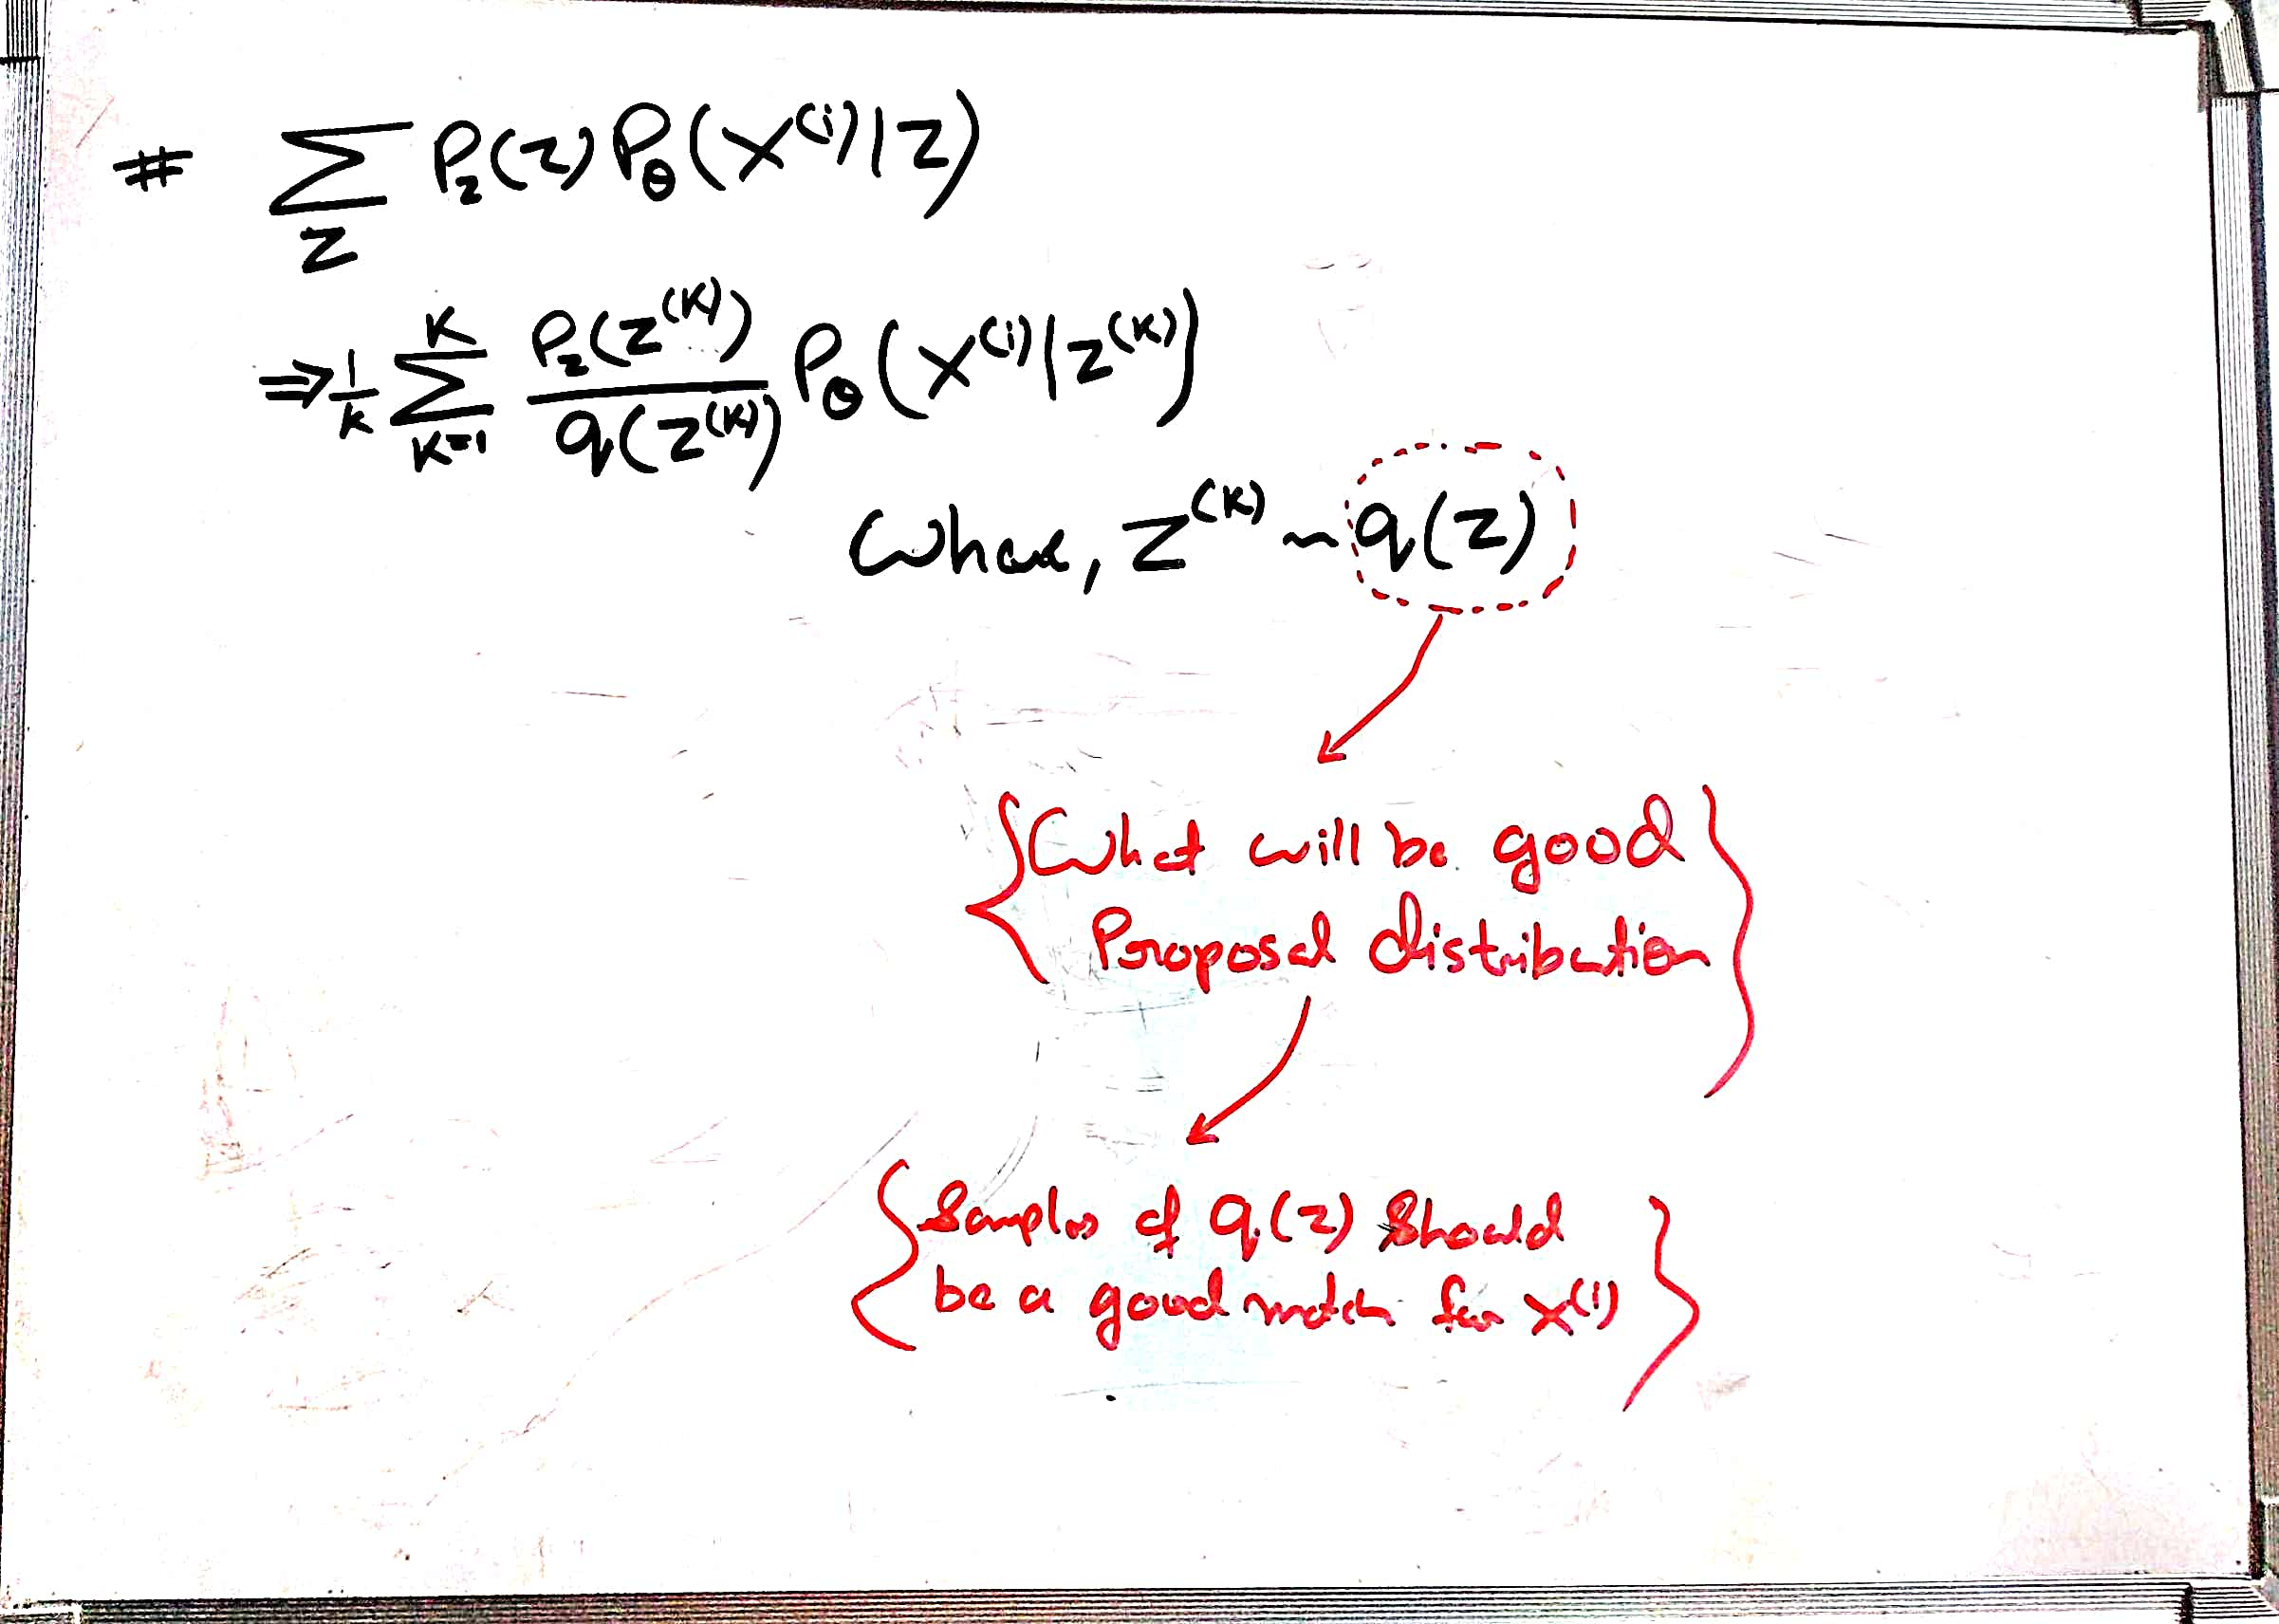 # ∑_z P_z(z) P_θ(x^(i)|z)
⇒ 1/K ∑_{K=1}^{K} P_z(z^(K)) / q(z^(K)) P_θ(x^(i)|z^(K))
Where, z^(K) ~ q(z)
{What will be good
Proposal distribution}
{Samples of q(z) should
be a good match for x^(i)}